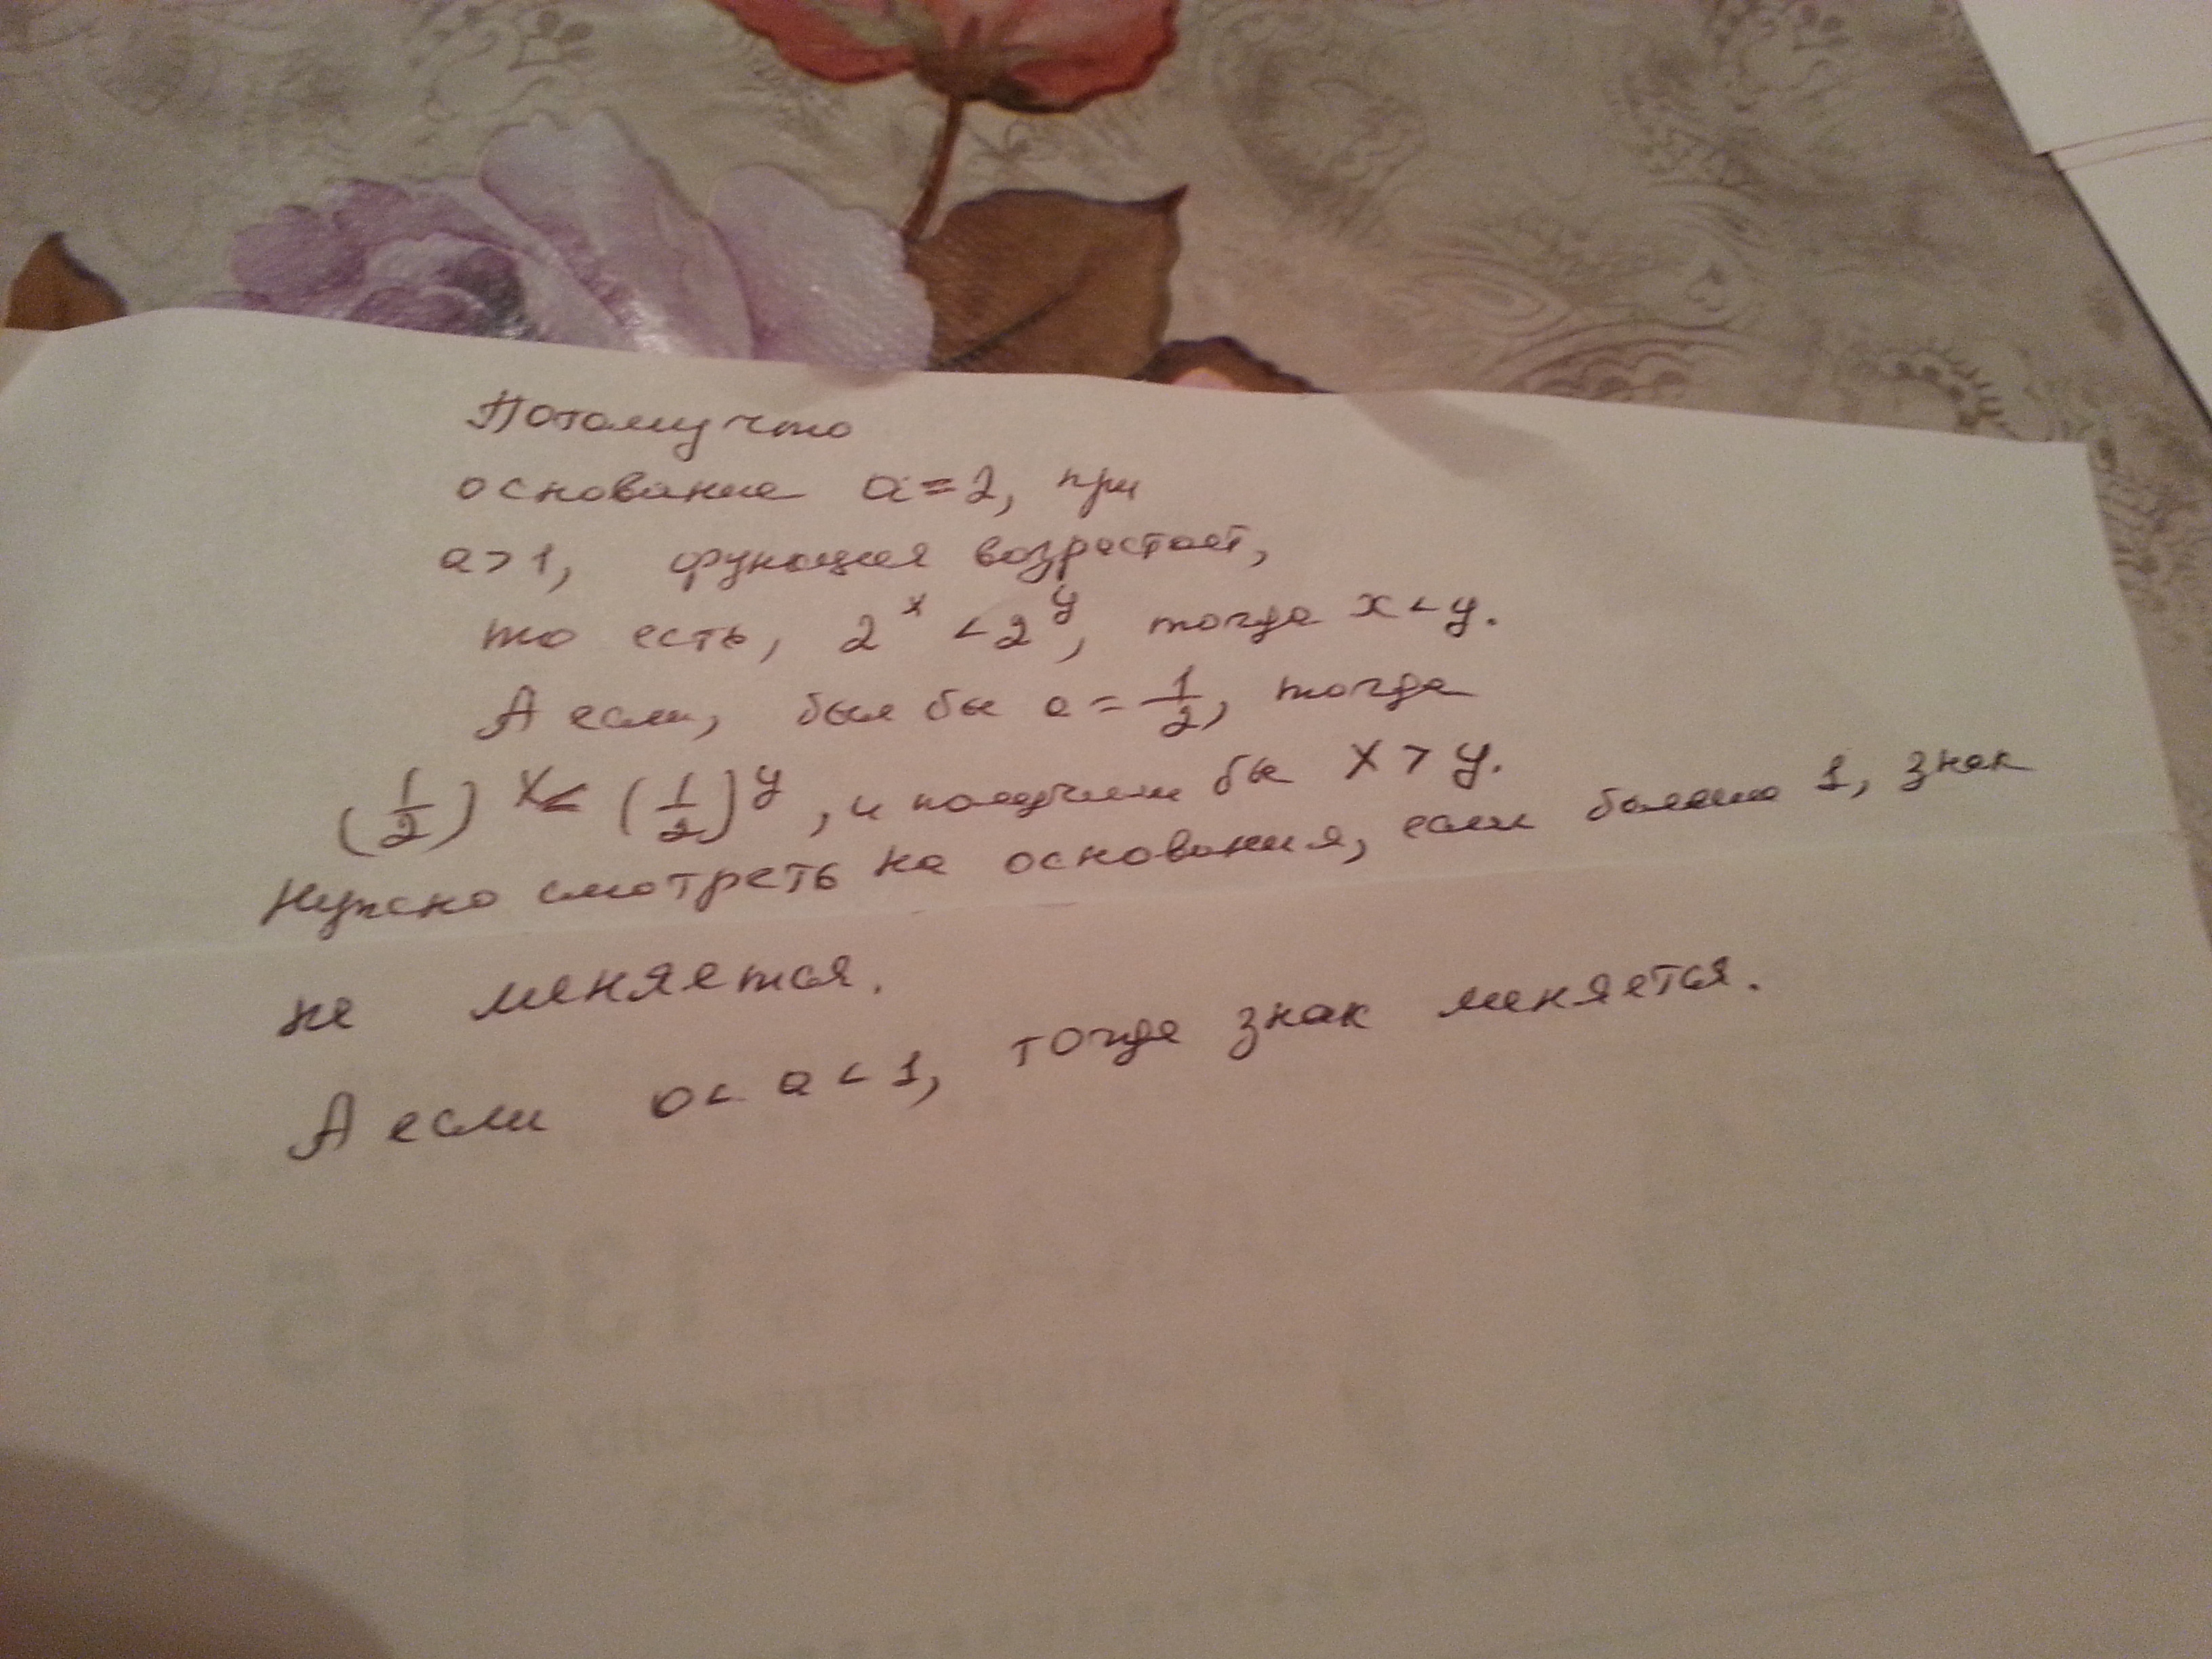 Потому что
основание a=2, при
a>1, функция возрастает,
то есть, 2^x <2^y, тогда x<y.
А если, был бы a=1/2, тогда
(1/2)^x < (1/2)^y, и получили бы x>y.
Нужно смотреть на основания, если больше 1, знак
не меняется.
А если 0< a<1, тогда знак меняется.